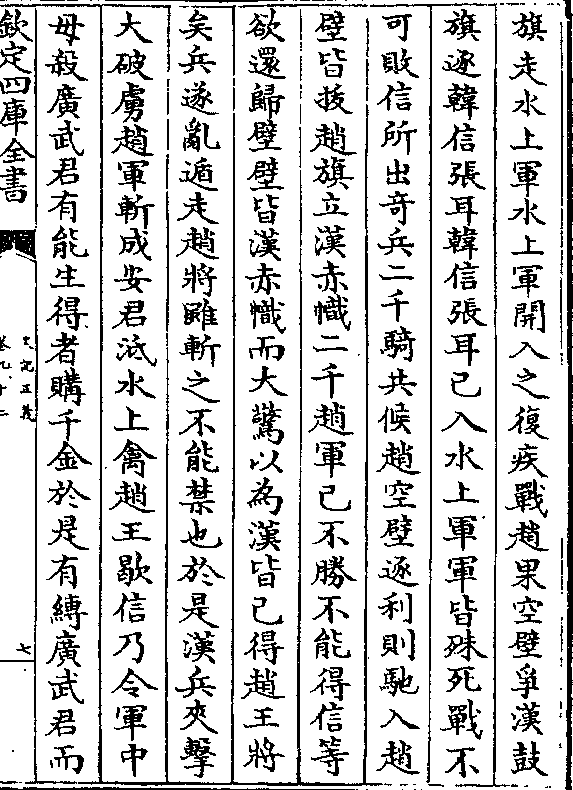 旗走水上軍水上軍開入之復疾戰趙果空壁爭漢鼓
旗逐韓信張耳韓信張耳已入水上軍軍皆殊死戰不
可敗信所出竒兵二千騎共候趙空壁逐利則馳入趙
壁皆拔趙旗立漢赤幟二千趙軍已不勝不能得信等
欲還歸壁壁皆漢赤幟而大驚以為漢皆已得趙王將
矣兵遂亂遁走趙將雖斬之不能禁也於是漢兵夾擊
大破虜趙軍斬成安君泜水上禽趙王歇信乃令軍中
毋殺廣武君有能生得者購千金於是有縛廣武君而
欽定四庫全書
史記正義
卷九十二
七